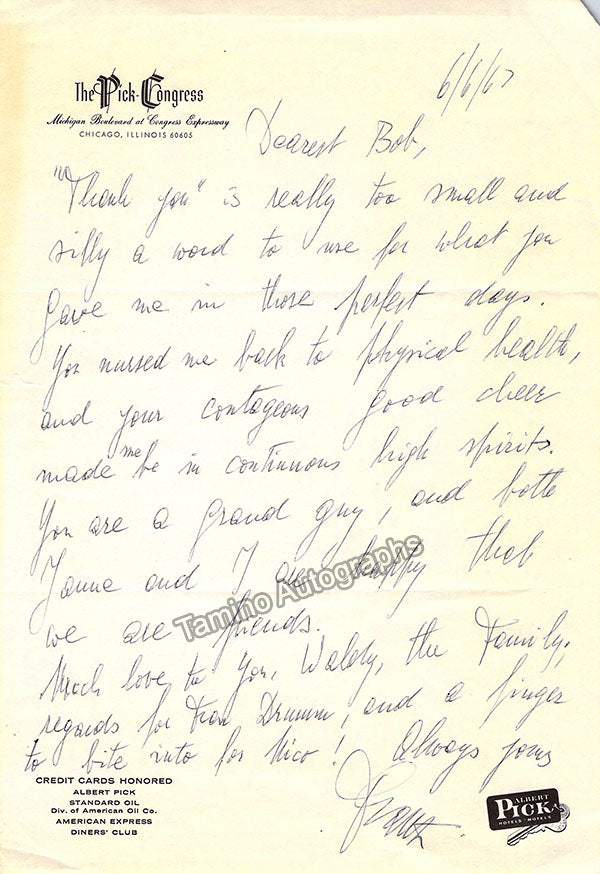 6/6/67
The Pick-Congress
Michigan Boulevard at Congress Expressway
CHICAGO, ILLINOIS 60605
Dearest Bob,
"Thank you" is really too small and
silly a word to use for what you
gave me in those perfect days.
You nursed me back to physical health,
and your contageous good cheer
made me be in continuous high spirits.
You are a grand guy, and both
Janne and I are happy that
we are friends.
Much love to you, Waldy, the Family,
regards for Drumm, and a finger
to bite into for Nico! Always yours
Franz
Tamino Autographs
CREDIT CARDS HONORED
ALBERT PICK
STANDARD OIL
Div. of American Oil Co.
AMERICAN EXPRESS
DINERS' CLUB
ALBERT
PICK
HOTELS · MOTELS